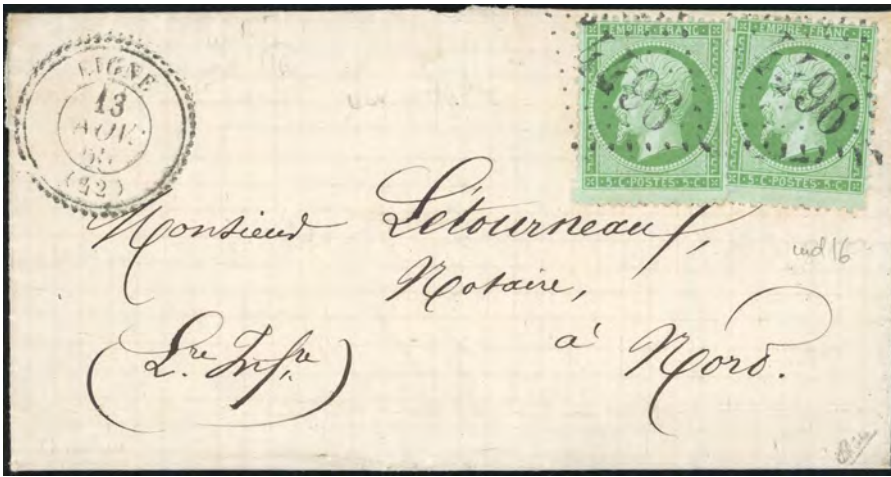 LIGNE
13
AOUT
(42)
EMPIRE·FRANC·
5·C·POSTES·5·C
EMPIRE·FRANC·
5·C·POSTES·5·C
Monsieur Létourneau,
Notaire,
à Nord.
(L.re Inf.re)